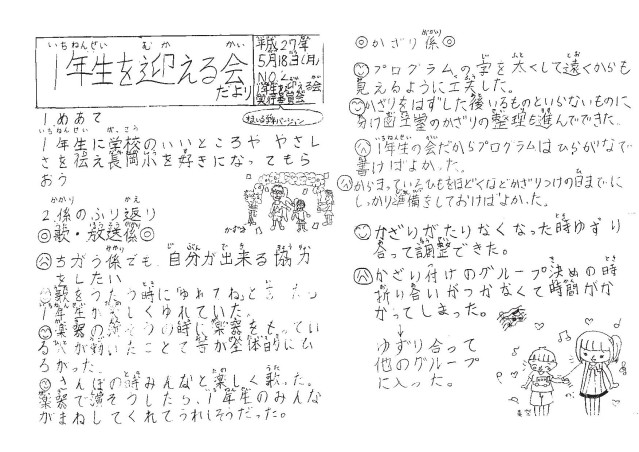 1年生を迎える会
だより
平成27年
5月18日(月)
NO.2
1年生を迎える会
実行委員会
1.めあて
1年生に学校のいいところや やさし
さを伝え長岡小を好きになってもら
おう
2.係のふり返り
◎歌・放送係◎
ちがう係でも、自分が出来る協力
をしたい。
1年生が楽しくゆれていた。
楽器の演そうの時に楽器をもってい
ろがった。
さんぽの時みんなと楽しく歌った。
楽器で演そうしたら、1年生のみんな
がまねしてくれてうれしそうだった。
◎かざり係◎
プログラムの字を太くして遠くからも
見えるように工夫した。
かざりをはずした後いるものといらないものに
分け
かざりの整理も進んでできた。
1年生の会だからプログラムはひらがなで
書けばよかった。
からまっているひもをほどくなどかざりつけの日までに
しっかり準備をしておけばよかった。
かざりがたりなくなった時ゆずり
合って調整できた。
かざり付けのグループ決めの時
折り合いがつかなくて時間がか
かってしまった。
↓
ゆずり合って
他のグループ
に入った。